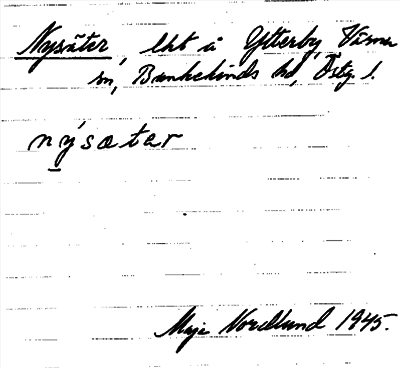 Nysäter, lht å Ytterby, Värna
sn, Bankekinds hd, Östg. l.
nýsætər
Maja Nordlund 1945.